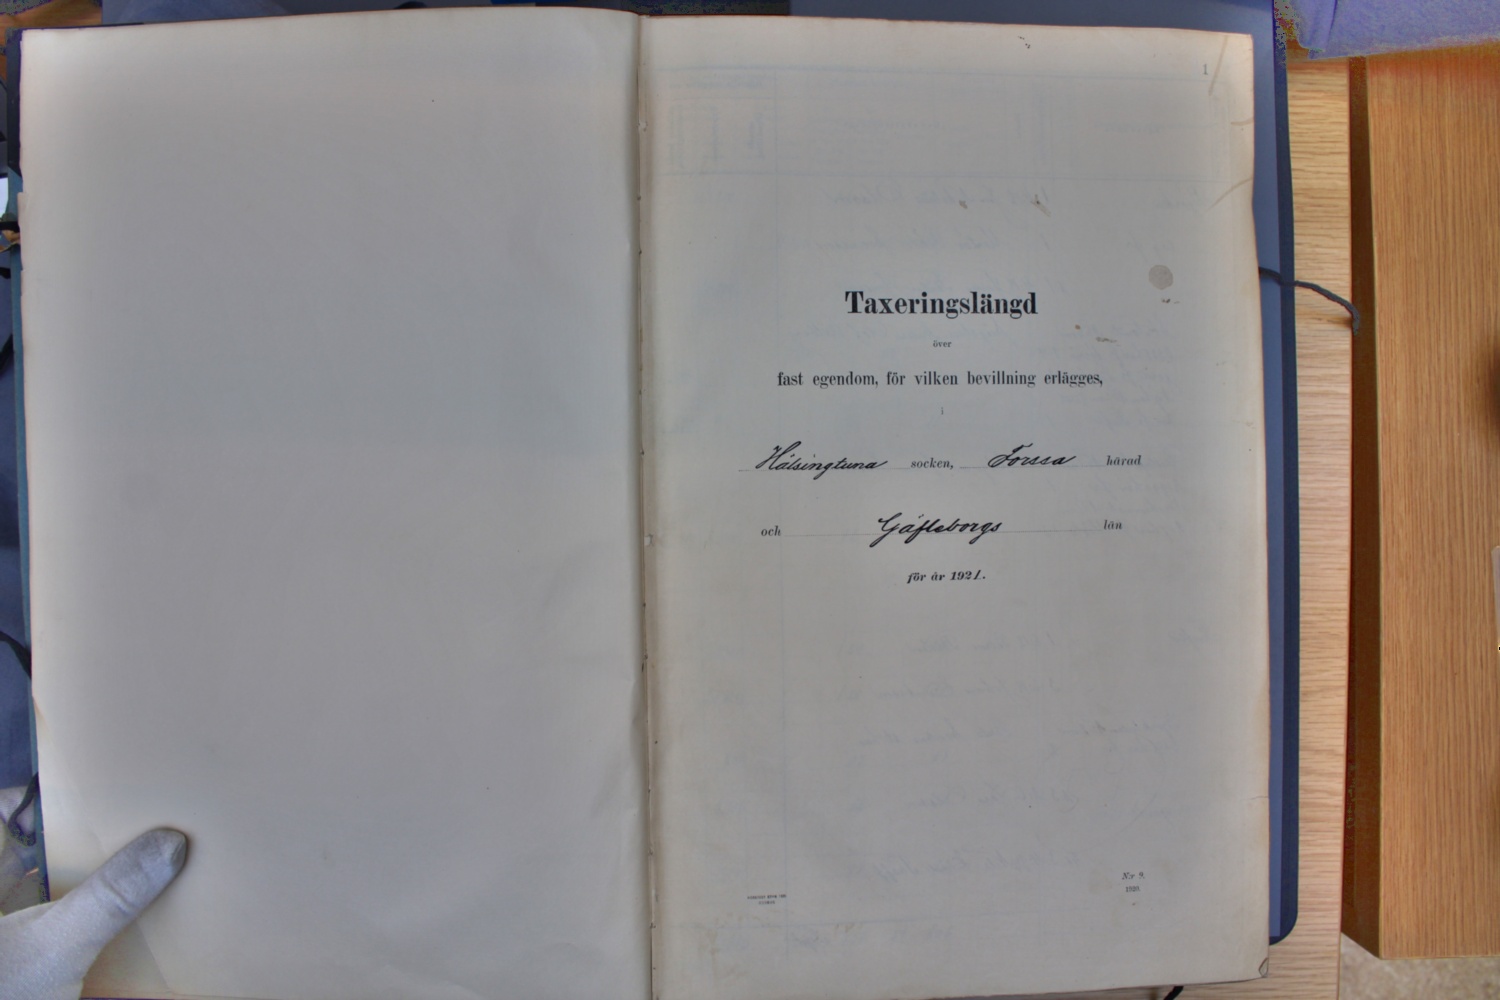 1
Taxeringslängd
över
fast egendom, för vilken bevillning erlägges,
i
Hälsingtuna socken, Forssa härad
och Gäfleborgs län
för år 1921.
N:r 9.
1920.